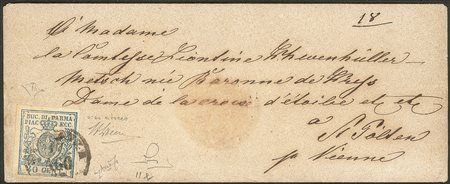 18
A Madame
la Comtesse Léontine Khevenhüller
Metsch née Baronne de
Dame de la croix d'étoilée et et
a St Pölten
pr Vienne
DUC. DI PARMA
PIAC. ECC.
40 CENT.